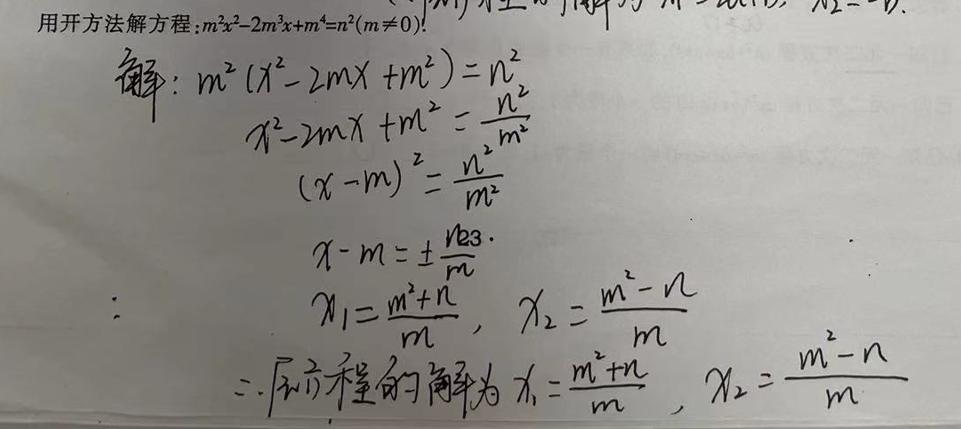 用开方法解方程:m²x²-2m³x+m⁴=n²(m≠0)!
解: m²(x²-2mx+m²)=n²
x²-2mx+m²=n²/m²
(x-m)²=n²/m²
x-m=±n/m
x₁=(m²+n)/m, x₂=(m²-n)/m
∴原方程的解为x₁=(m²+n)/m, x₂=(m²-n)/m